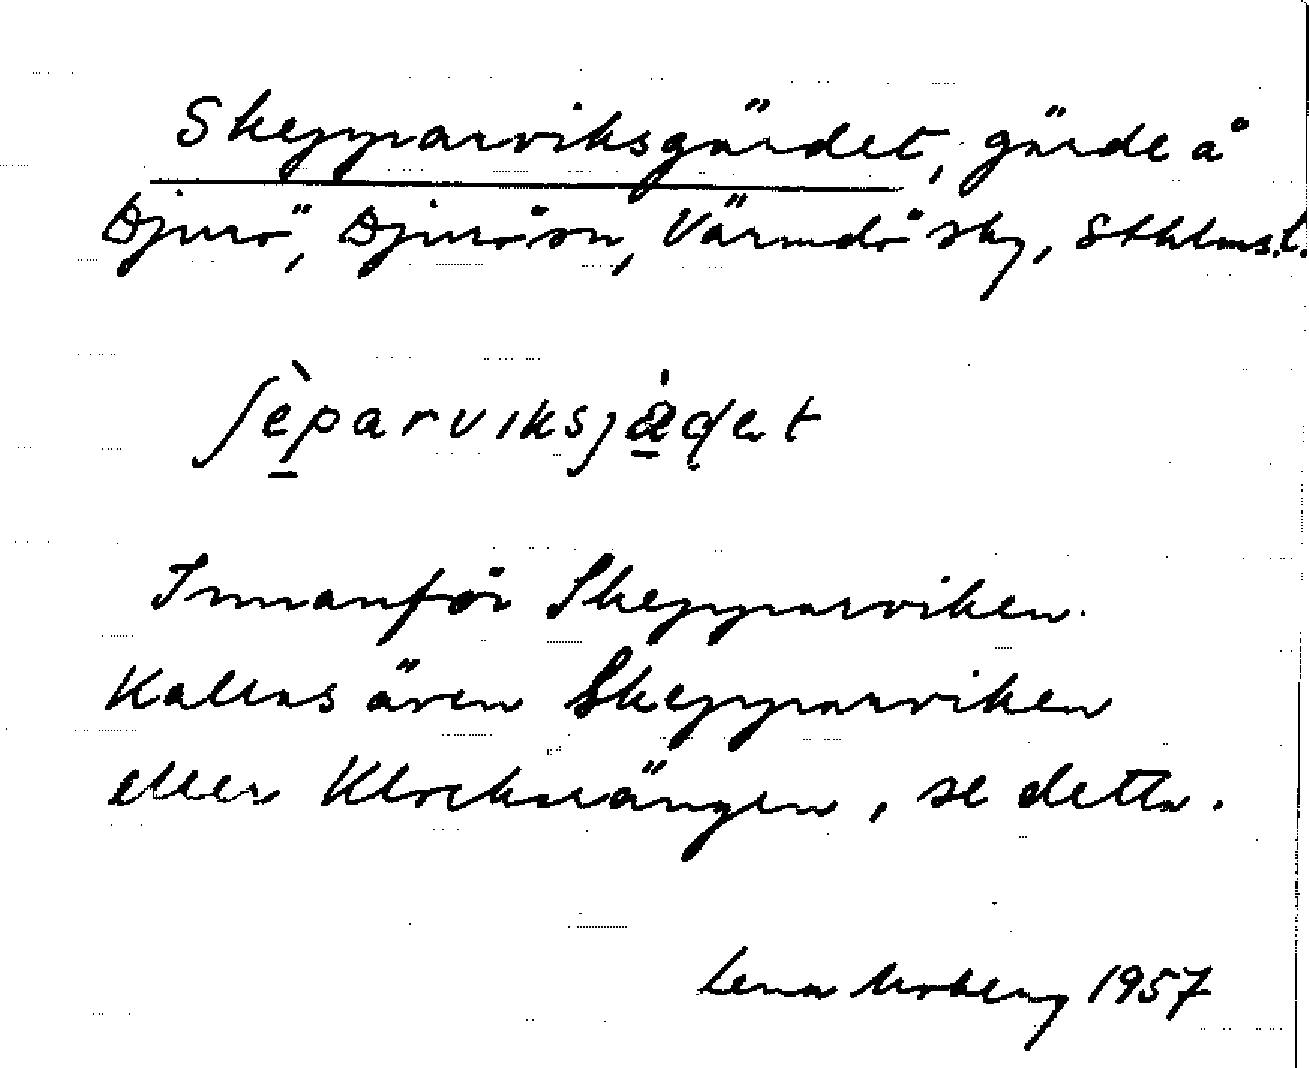 Skepparviksgärdet, gärde å
Djurö, Djurö sn, Värmdö skg, Sthlms l.
ʃèparviksjädet
Innanför Skepparviken.
Kallas även Skepparviken
eller Klockarängen, se detta.
Lena Moberg 1957